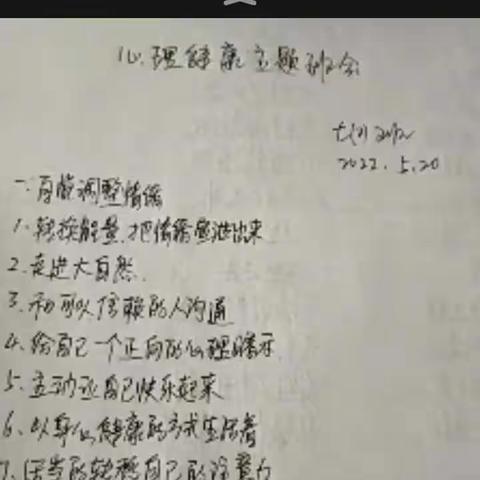 心理健康主题班会
七(1)班
2022.5.20
一:有效调整情绪
1.转换能量,把情绪宣泄出来
2.走进大自然.
3.和可以信赖的人沟通
4.给自己一个正向的心理暗示
5.主动让自己快乐起来
6.以身心健康的方式生活着
7.适当的转移自己的注意力